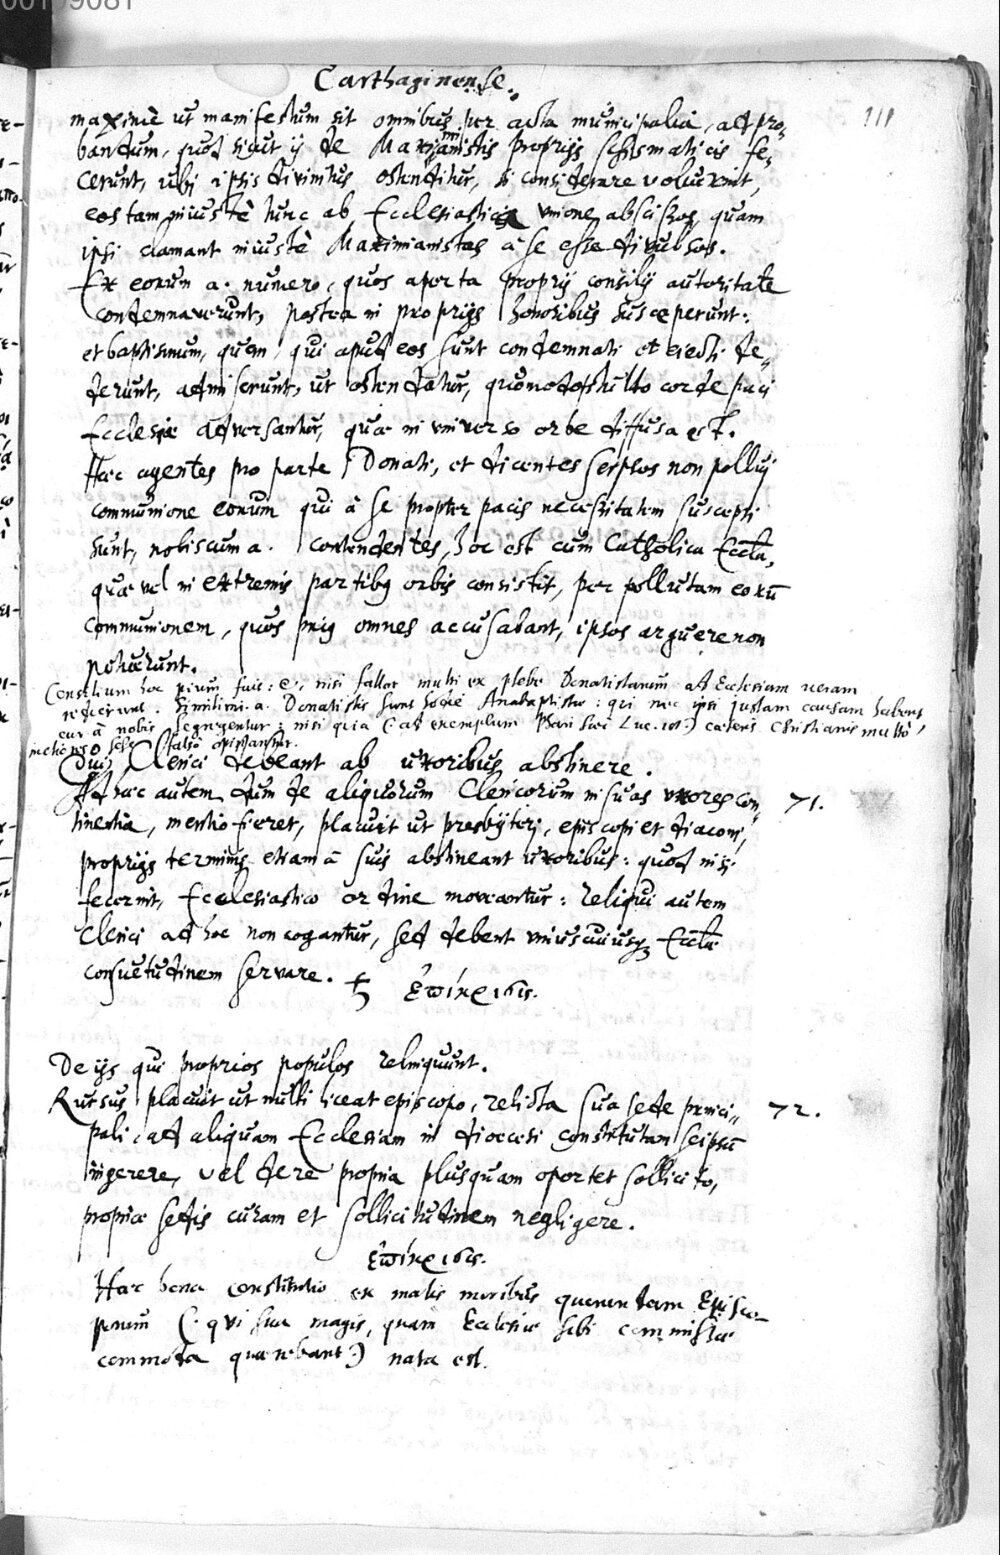 00109081
Carthaginense.
111
maximè ut manifestum sit omnibus per acta municipalia, ad pro-
bandum, quod sicut ij de Maximianistis proprijs schismaticis fe-
cerunt, ubi ipsis divinitus ostenditur, si considerare voluerint,
eos tam iniustè tunc ab Ecclesiastica unione abscissos, quam
ipsi clamant iniustè Maximianistas à se esse divulsos.
Ex eorum a. numero, quos aperta proprij consilij autoritate
condemnaverunt, postea in proprijs honoribus susceperunt:
et baptismum, quem qui apud eos sunt condemnati et eiecti de-
derunt, admiserunt, ut ostendatur, quomodo stulto corde paci
Ecclesiæ adversantur, quæ in universo orbe diffusa est.
Hæc agentes pro parte Donati, et dicentes seipsos non pollui
communione eorum qui à se propter pacis necessitatem suscepti
sunt, nobiscum a. contendentes, hoc est cum Catholica Eccla,
quæ vel in extremis partibq orbis consistit, per pollutam eorū
communionem, quos priq omnes accusabant, ipsos arguere non
potuerunt.
Consilium hoc pium fuit: et, nisi fallor multi ex plebe Donatistarum ad Ecclesiam veram
redierunt. Simillimi a. Donatistis sunt hodie Anabaptistæ: qui nec ipsi iustam causam habent
cur à nobis segregentur: nisi quia (ad exemplum Luc. 18.) cæteris Christianis multo
meliores se falsò opinantur.
Quod Clerici debeant ab uxoribus abstinere.
Ad hæc autem, dum de aliquorum Clericorum in suas uxores con-
71.
tinentia, mentio fieret, placuit ut presbyteri, episcopi et diaconi,
proprijs terminis etiam à suis abstineant uxoribus: quod nisi
fecerint, Ecclesiastico ordine moveantur: reliqui autem
Clerici ad hoc non cogantur, sed debent uniuscuiusq Ecclæ
consuetudinem servare.
Ἐπίκρισις.
De ijs qui proprios populos relinquunt.
Rursus placuit ut nulli liceat episcopo, relicta sua sede princi-
72.
pali, ad aliquam Ecclesiam in dioecesi constitutam seipsū
ingerere, vel de re propria plusquam oportet sollicito,
propriæ sedis curam et sollicitudinem negligere.
Ἐπίκρισις.
Hæc bona constitutio ex malis moribus quorundam Episco-
porum (qui sua magis, quam Ecclesiæ sibi commissæ
commoda quærebant) nata est.